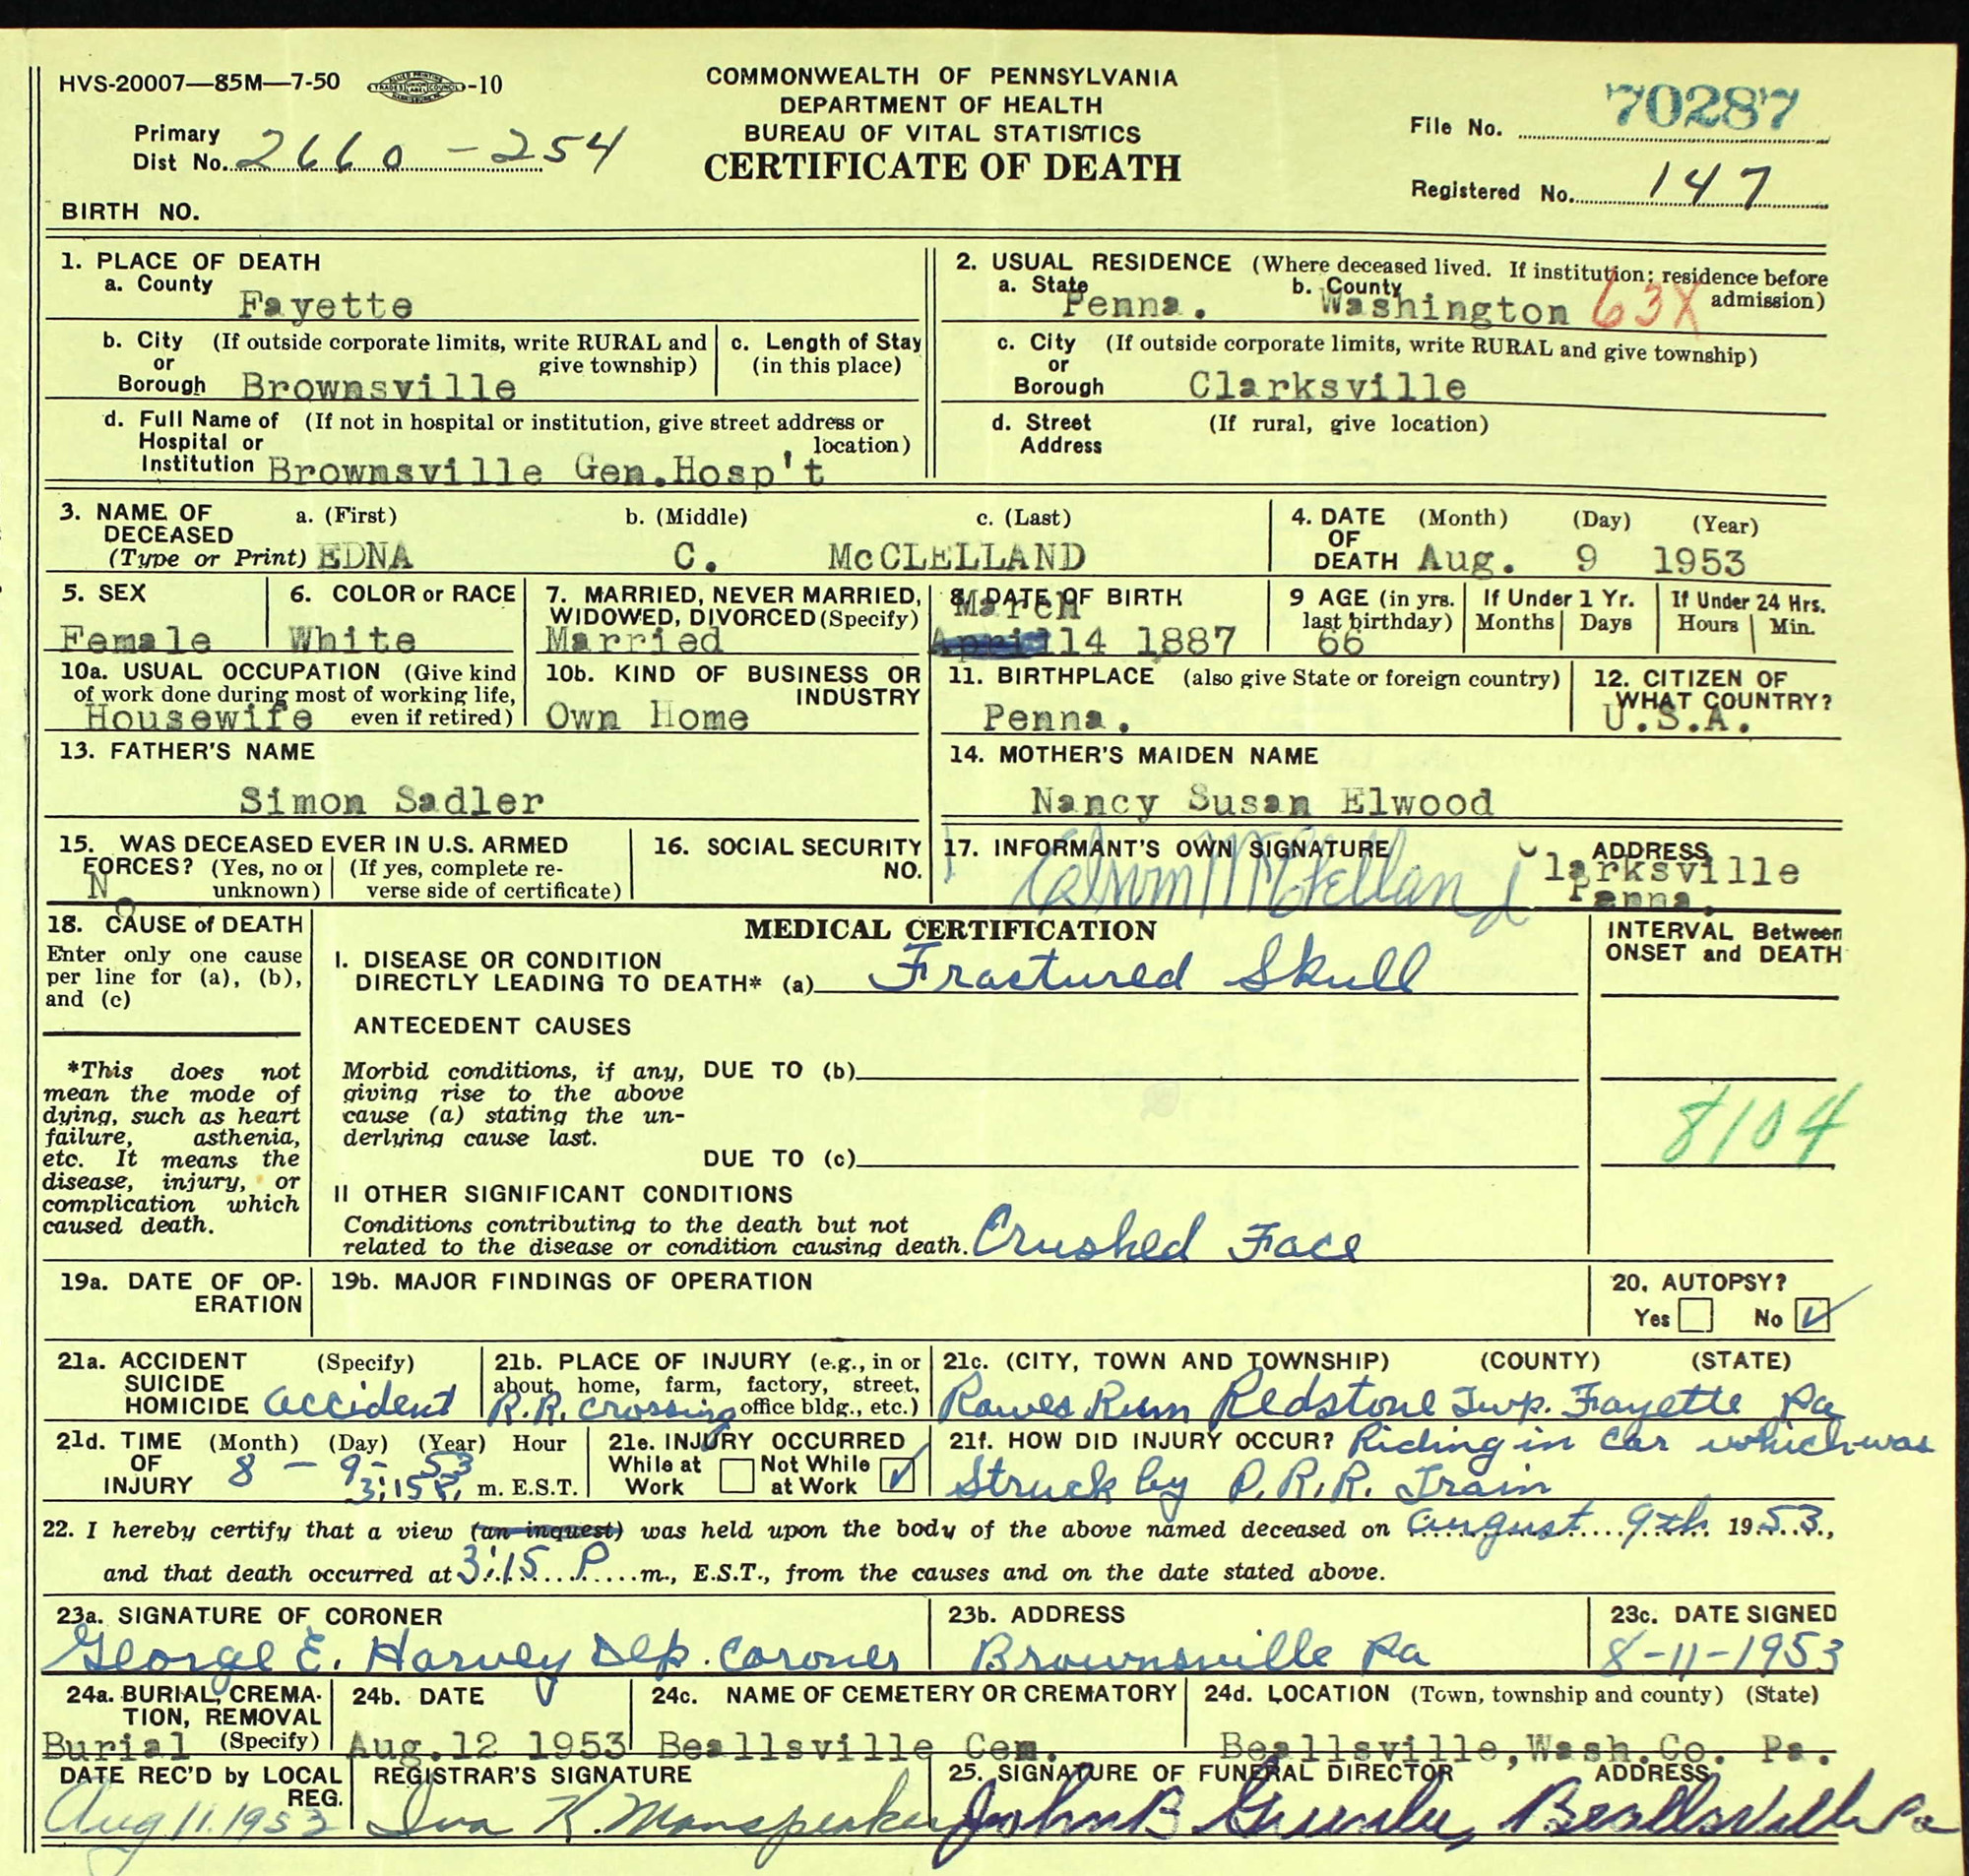 HVS-20007—85M—7-50 -10
COMMONWEALTH OF PENNSYLVANIA
DEPARTMENT OF HEALTH
BUREAU OF VITAL STATISTICS
CERTIFICATE OF DEATH
Primary
Dist No. 2660 - 254
File No. 70287
Registered No. 147
BIRTH NO.
1. PLACE OF DEATH
a. County
Fayette
2. USUAL RESIDENCE (Where deceased lived. If institution: residence before
admission)
a. State b. County
Penna. Washington 63X
b. City (If outside corporate limits, write RURAL and
or give township)
Borough Brownsville
c. Length of Stay
(in this place)
c. City (If outside corporate limits, write RURAL and give township)
or
Borough Clarksville
d. Full Name of (If not in hospital or institution, give street address or
Hospital or location)
Institution Brownsville Gen.Hosp't
d. Street (If rural, give location)
Address
3. NAME OF a. (First) b. (Middle) c. (Last)
DECEASED
(Type or Print) EDNA C. McCLELLAND
4. DATE (Month) (Day) (Year)
OF
DEATH Aug. 9 1953
5. SEX
Female
6. COLOR or RACE
White
7. MARRIED, NEVER MARRIED,
WIDOWED, DIVORCED (Specify)
Married
8. DATE OF BIRTH
March
April 14 1887
9 AGE (in yrs.
last birthday)
66
If Under 1 Yr.
Months Days
If Under 24 Hrs.
Hours Min.
10a. USUAL OCCUPATION (Give kind
of work done during most of working life,
Housewife even if retired)
10b. KIND OF BUSINESS OR
INDUSTRY
Own Home
11. BIRTHPLACE (also give State or foreign country)
Penna.
12. CITIZEN OF
WHAT COUNTRY?
U.S.A.
13. FATHER'S NAME
Simon Sadler
14. MOTHER'S MAIDEN NAME
Nancy Susan Elwood
15. WAS DECEASED EVER IN U.S. ARMED
FORCES? (Yes, no or (If yes, complete re-
No unknown) verse side of certificate)
16. SOCIAL SECURITY
NO.
17. INFORMANT'S OWN SIGNATURE ADDRESS
McClelland Clarksville
Penna.
18. CAUSE of DEATH
Enter only one cause
per line for (a), (b),
and (c)
*This does not
mean the mode of
dying, such as heart
failure, asthenia,
etc. It means the
disease, injury, or
complication which
caused death.
MEDICAL CERTIFICATION
I. DISEASE OR CONDITION
DIRECTLY LEADING TO DEATH* (a) Fractured Skull
ANTECEDENT CAUSES
Morbid conditions, if any, DUE TO (b)
giving rise to the above
cause (a) stating the un-
derlying cause last.
DUE TO (c)
II OTHER SIGNIFICANT CONDITIONS
Conditions contributing to the death but not
related to the disease or condition causing death. Crushed Face
INTERVAL Between
ONSET and DEATH
8104
19a. DATE OF OP-
ERATION
19b. MAJOR FINDINGS OF OPERATION
20. AUTOPSY?
Yes No ✓
21a. ACCIDENT (Specify)
SUICIDE
HOMICIDE accident
21b. PLACE OF INJURY (e.g., in or
about home, farm, factory, street,
R.R. Crossing office bldg., etc.)
21c. (CITY, TOWN AND TOWNSHIP) (COUNTY) (STATE)
Rowes Run Redstone Twp. Fayette Pa
21d. TIME (Month) (Day) (Year) Hour
OF 8 - 9 - 53
INJURY 3:15 P. m. E.S.T.
21e. INJURY OCCURRED
While at Not While
Work at Work ✓
21f. HOW DID INJURY OCCUR? Riding in car which was
Struck by P.R.R. Train
22. I hereby certify that a view (an inquest) was held upon the body of the above named deceased on august 9th 1953,
and that death occurred at 3:15 P m., E.S.T., from the causes and on the date stated above.
23a. SIGNATURE OF CORONER
George E. Harvey Dep. Coroner
23b. ADDRESS
Brownsville Pa
23c. DATE SIGNED
8-11-1953
24a. BURIAL, CREMA-
TION, REMOVAL
Burial (Specify)
24b. DATE
Aug.12 1953
24c. NAME OF CEMETERY OR CREMATORY
Beallsville Cem.
24d. LOCATION (Town, township and county) (State)
Beallsville,Wash.Co. Pa.
DATE REC'D by LOCAL
REG.
Aug 11. 1953
REGISTRAR'S SIGNATURE
Iva K. Manspeaker
25. SIGNATURE OF FUNERAL DIRECTOR ADDRESS
John B Beallsville Pa